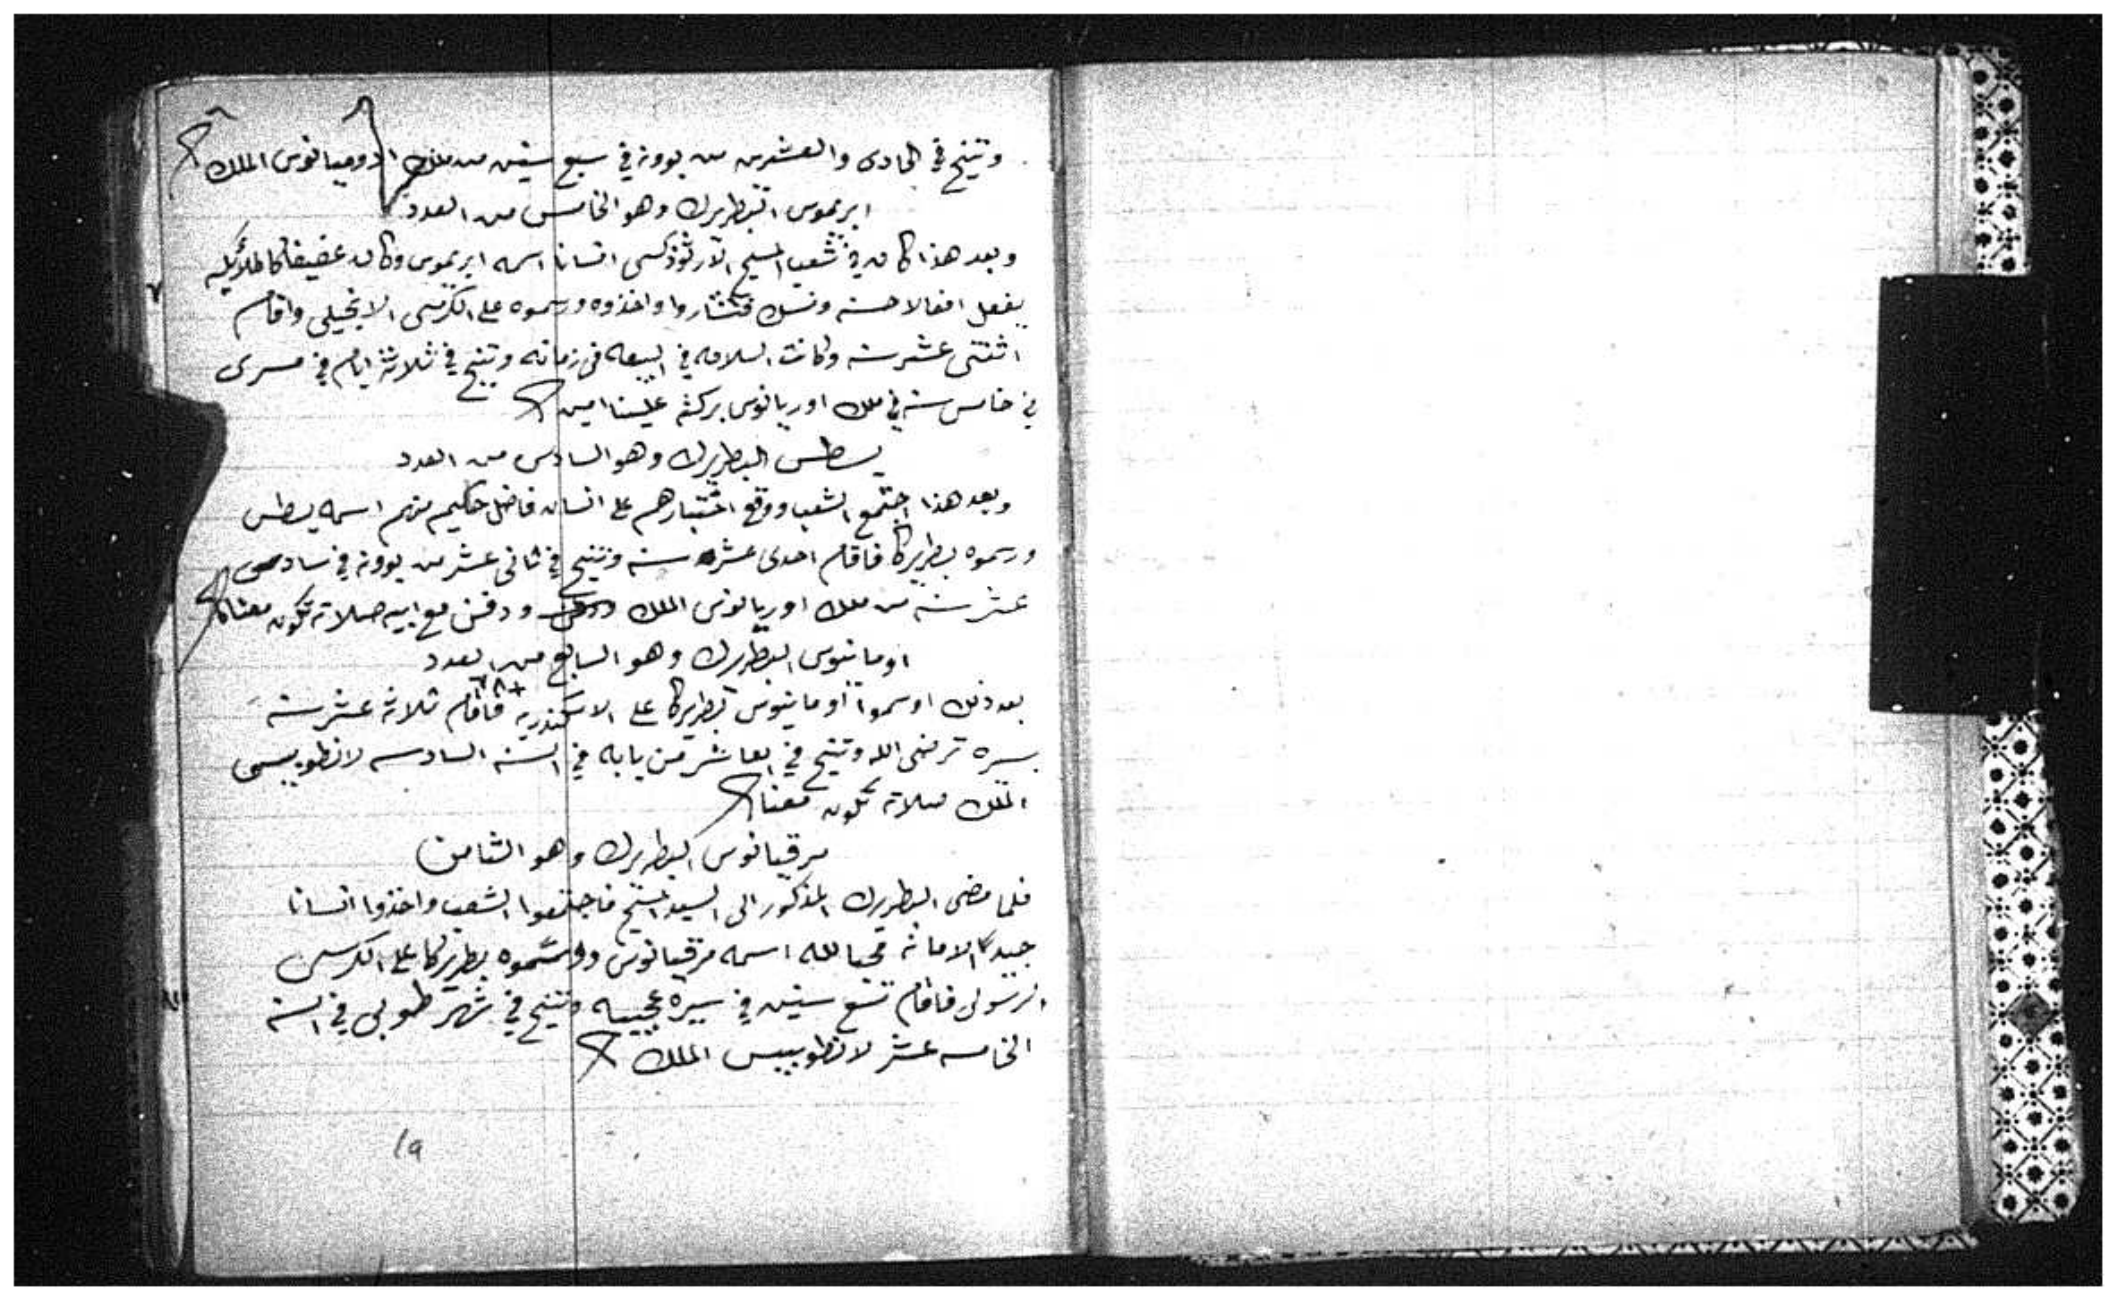 وتنيح في الحادى والعشرين من بوونه في سبع سنين من ملك ادوميانوس الملك
ابريموس البطريرك وهو الخامس من العدد
وبعد هذا كان في شعب المسيح الارثوذكسى انسانا اسمه ابريموس وكان عفيفا كالملائكه
يفعل افعالا حسنه ونسك واخذوه ورسموه على الكرسى الانجيلى واقام
اثنتى عشر سنه وكانت السلامه في البيعه فى زمانه وتنيح في ثلاثة ايام في مسرى
في خامس سنه في ملك اوريانوس بركته علينا امين
يسطس البطريرك وهو السادس من العدد
وبعد هذا اجتمع الشعب ووقع اختيارهم على انسان فاضل حكيم منهم اسمه يسطس
ورسموه بطريركا فاقام احدى عشره سنه وتنيح في ثانى عشر من بوونه في سادس
عشر سنه من ملك اوريانوس الملك ودفن مع ابيه صلاته تكون معنا
اومانيوس البطريرك وهو السابع من العدد
بعد ذلك اوسموا اومانيوس بطريركا على الاسكندريه فاقام ثلاثه عشر سنه
بسيره ترضى الله وتنيح في العاشر من بابه في السنه السادسه لانطوبيس
الملك صلاته تكون معنا
مرقيانوس البطريرك وهو الثامن
فلما مضى البطريرك المذكور الى السيد المسيح فاجتمعوا الشعب واخذوا انسانا
جيد الامانه محبا لله اسمه مرقيانوس واوسموه بطريركا على الكرسى
الرسولى فاقام تسع سنين في سيرة عجيبه وتنيح في شهر طوبى في السنه
الخامسه عشر لانطوبيس الملك
١٩